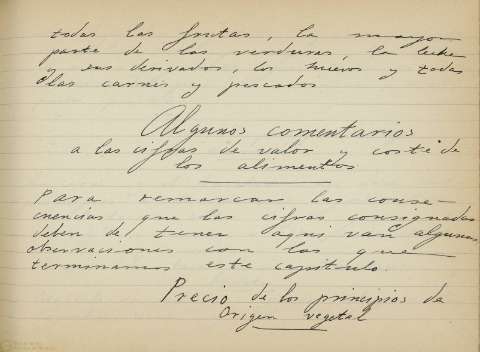 todas las frutas, la mayor
parte de las verduras, la leche
y sus derivados, los huevos y todas
las carnes y pescados
Algunos comentarios
a las cifras de valor y coste de
los alimentos
Para remarcar las conse-
cuencias que las cifras consignadas
deben de tener aqui van algunas
observaciones con las que
terminamos este capitulo.
Precio de los principios de
Origen vegetal